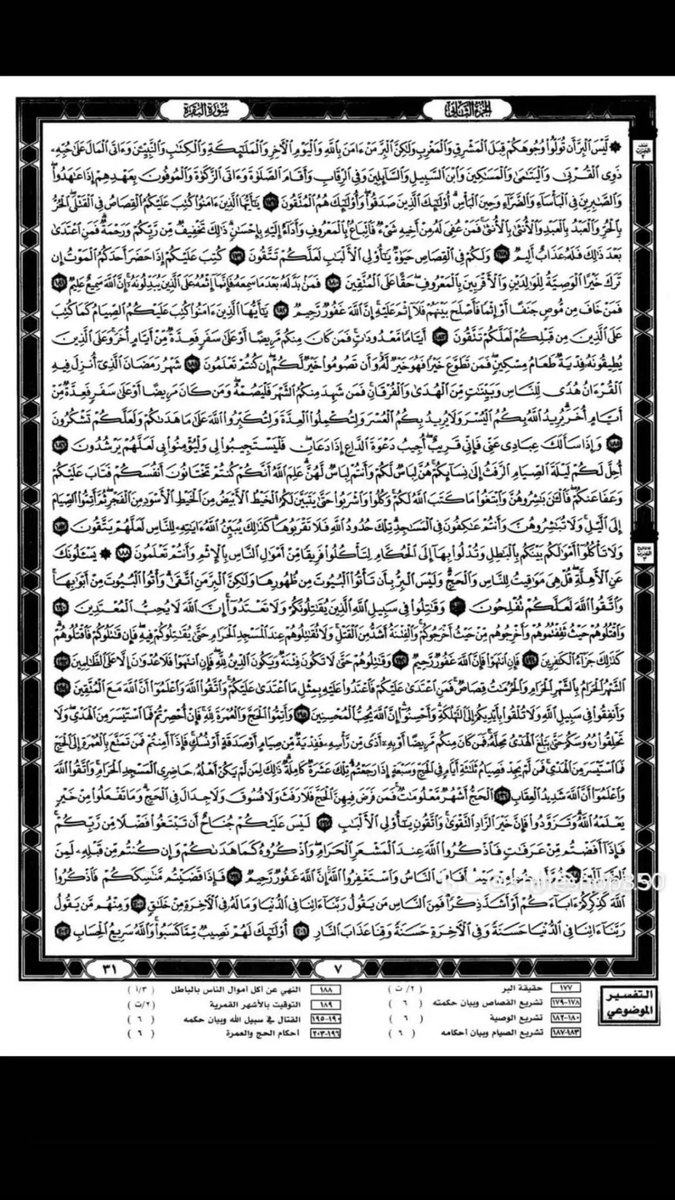 الجزء الثاني
سورة البقرة
۞ ليس البر أن تولوا وجوهكم قبل المشرق والمغرب ولكن البر من ءامن بالله واليوم الآخر والملئكة والكتب والنبيين وءاتى المال على حبه
ذوي القربى واليتمى والمسكين وابن السبيل والسائلين وفي الرقاب وأقام الصلوة وءاتى الزكوة والموفون بعهدهم إذا عهدوا
والصبرين في البأساء والضراء وحين البأس أولئك الذين صدقوا وأولئك هم المتقون ١٧٧ يأيها الذين ءامنوا كتب عليكم القصاص في القتلى الحر
بالحر والعبد بالعبد والأنثى بالأنثى فمن عفي له من أخيه شيء فاتباع بالمعروف وأداء إليه بإحسن ذلك تخفيف من ربكم ورحمة فمن اعتدى
بعد ذلك فله عذاب أليم ١٧٨ ولكم في القصاص حيوة يأولي الألبب لعلكم تتقون ١٧٩ كتب عليكم إذا حضر أحدكم الموت إن
ترك خيرا الوصية للولدين والأقربين بالمعروف حقا على المتقين ١٨٠ فمن بدله بعدما سمعه فإنما إثمه على الذين يبدلونه إن الله سميع عليم ١٨١
فمن خاف من موص جنفا أو إثما فأصلح بينهم فلا إثم عليه إن الله غفور رحيم ١٨٢ يأيها الذين ءامنوا كتب عليكم الصيام كما كتب
على الذين من قبلكم لعلكم تتقون ١٨٣ أياما معدودات فمن كان منكم مريضا أو على سفر فعدة من أيام أخر وعلى الذين
يطيقونه فدية طعام مسكين فمن تطوع خيرا فهو خير له وأن تصوموا خير لكم إن كنتم تعلمون ١٨٤ شهر رمضان الذي أنزل فيه
القرءان هدى للناس وبينت من الهدى والفرقان فمن شهد منكم الشهر فليصمه ومن كان مريضا أو على سفر فعدة من
أيام أخر يريد الله بكم اليسر ولا يريد بكم العسر ولتكملوا العدة ولتكبروا الله على ما هدىكم ولعلكم تشكرون
١٨٥ وإذا سألك عبادي عني فإني قريب أجيب دعوة الداع إذا دعان فليستجيبوا لي وليؤمنوا بي لعلهم يرشدون ١٨٦
أحل لكم ليلة الصيام الرفث إلى نسائكم هن لباس لكم وأنتم لباس لهن علم الله أنكم كنتم تختانون أنفسكم فتاب عليكم
وعفا عنكم فالئن بشروهن وابتغوا ما كتب الله لكم وكلوا واشربوا حتى يتبين لكم الخيط الأبيض من الخيط الأسود من الفجر ثم أتموا الصيام
إلى الليل ولا تبشروهن وأنتم عكفون في المسجد تلك حدود الله فلا تقربوها كذلك يبين الله ءايته للناس لعلهم يتقون ١٨٧
ولا تأكلوا أمولكم بينكم بالبطل وتدلوا بها إلى الحكام لتأكلوا فريقا من أمول الناس بالإثم وأنتم تعلمون ١٨٨ ۞ يسألونك
عن الأهلة قل هي موقيت للناس والحج وليس البر بأن تأتوا البيوت من ظهورها ولكن البر من اتقى وأتوا البيوت من أبوبها
واتقوا الله لعلكم تفلحون ١٨٩ وقتلوا في سبيل الله الذين يقتلونكم ولا تعتدوا إن الله لا يحب المعتدين ١٩٠
واقتلوهم حيث ثقفتموهم وأخرجوهم من حيث أخرجوكم والفتنة أشد من القتل ولا تقتلوهم عند المسجد الحرام حتى يقتلوكم فيه فإن قتلوكم فاقتلوهم
كذلك جزاء الكفرين ١٩١ فإن انتهوا فإن الله غفور رحيم ١٩٢ وقتلوهم حتى لا تكون فتنة ويكون الدين لله فإن انتهوا فلا عدون إلا على الظلمين ١٩٣
الشهر الحرام بالشهر الحرام والحرمت قصاص فمن اعتدى عليكم فاعتدوا عليه بمثل ما اعتدى عليكم واتقوا الله واعلموا أن الله مع المتقين ١٩٤
وأنفقوا في سبيل الله ولا تلقوا بأيديكم إلى التهلكة وأحسنوا إن الله يحب المحسنين ١٩٥ وأتموا الحج والعمرة لله فإن أحصرتم فما استيسر من الهدي ولا
تحلقوا رءوسكم حتى يبلغ الهدي محله فمن كان منكم مريضا أو به أذى من رأسه ففدية من صيام أو صدقة أو نسك فإذا أمنتم فمن تمتع بالعمرة إلى الحج
فما استيسر من الهدي فمن لم يجد فصيام ثلثة أيام في الحج وسبعة إذا رجعتم تلك عشرة كاملة ذلك لمن لم يكن أهله حاضري المسجد الحرام واتقوا الله
واعلموا أن الله شديد العقاب ١٩٦ الحج أشهر معلومت فمن فرض فيهن الحج فلا رفث ولا فسوق ولا جدال في الحج وما تفعلوا من خير
يعلمه الله وتزودوا فإن خير الزاد التقوى واتقون يأولي الألبب ١٩٧ ليس عليكم جناح أن تبتغوا فضلا من ربكم
فإذا أفضتم من عرفت فاذكروا الله عند المشعر الحرام واذكروه كما هدىكم وإن كنتم من قبله لمن
الضالين ١٩٨ ثم أفيضوا من حيث أفاض الناس واستغفروا الله إن الله غفور رحيم ١٩٩ فإذا قضيتم منسككم فاذكروا
الله كذكركم ءاباءكم أو أشد ذكرا فمن الناس من يقول ربنا ءاتنا في الدنيا وما له في الآخرة من خلق ٢٠٠ ومنهم من يقول
ربنا ءاتنا في الدنيا حسنة وفي الآخرة حسنة وقنا عذاب النار ٢٠١ أولئك لهم نصيب مما كسبوا والله سريع الحساب ٢٠٢
٧
٣١
التفسير الموضوعي
١٧٧ حقيقة البر (٢/ ت)
١٧٨-١٧٩ تشريع القصاص وبيان حكمته (٦)
١٨٠-١٨٢ تشريع الوصية (٦)
١٨٣-١٨٧ تشريع الصيام وبيان أحكامه (٦)
١٨٨ النهي عن أكل أموال الناس بالباطل (٣/أ)
١٨٩ التوقيت بالأشهر القمرية (٢/ت)
١٩٠-١٩٥ القتال في سبيل الله وبيان حكمه (٦)
١٩٦-٢٠٣ أحكام الحج والعمرة (٦)